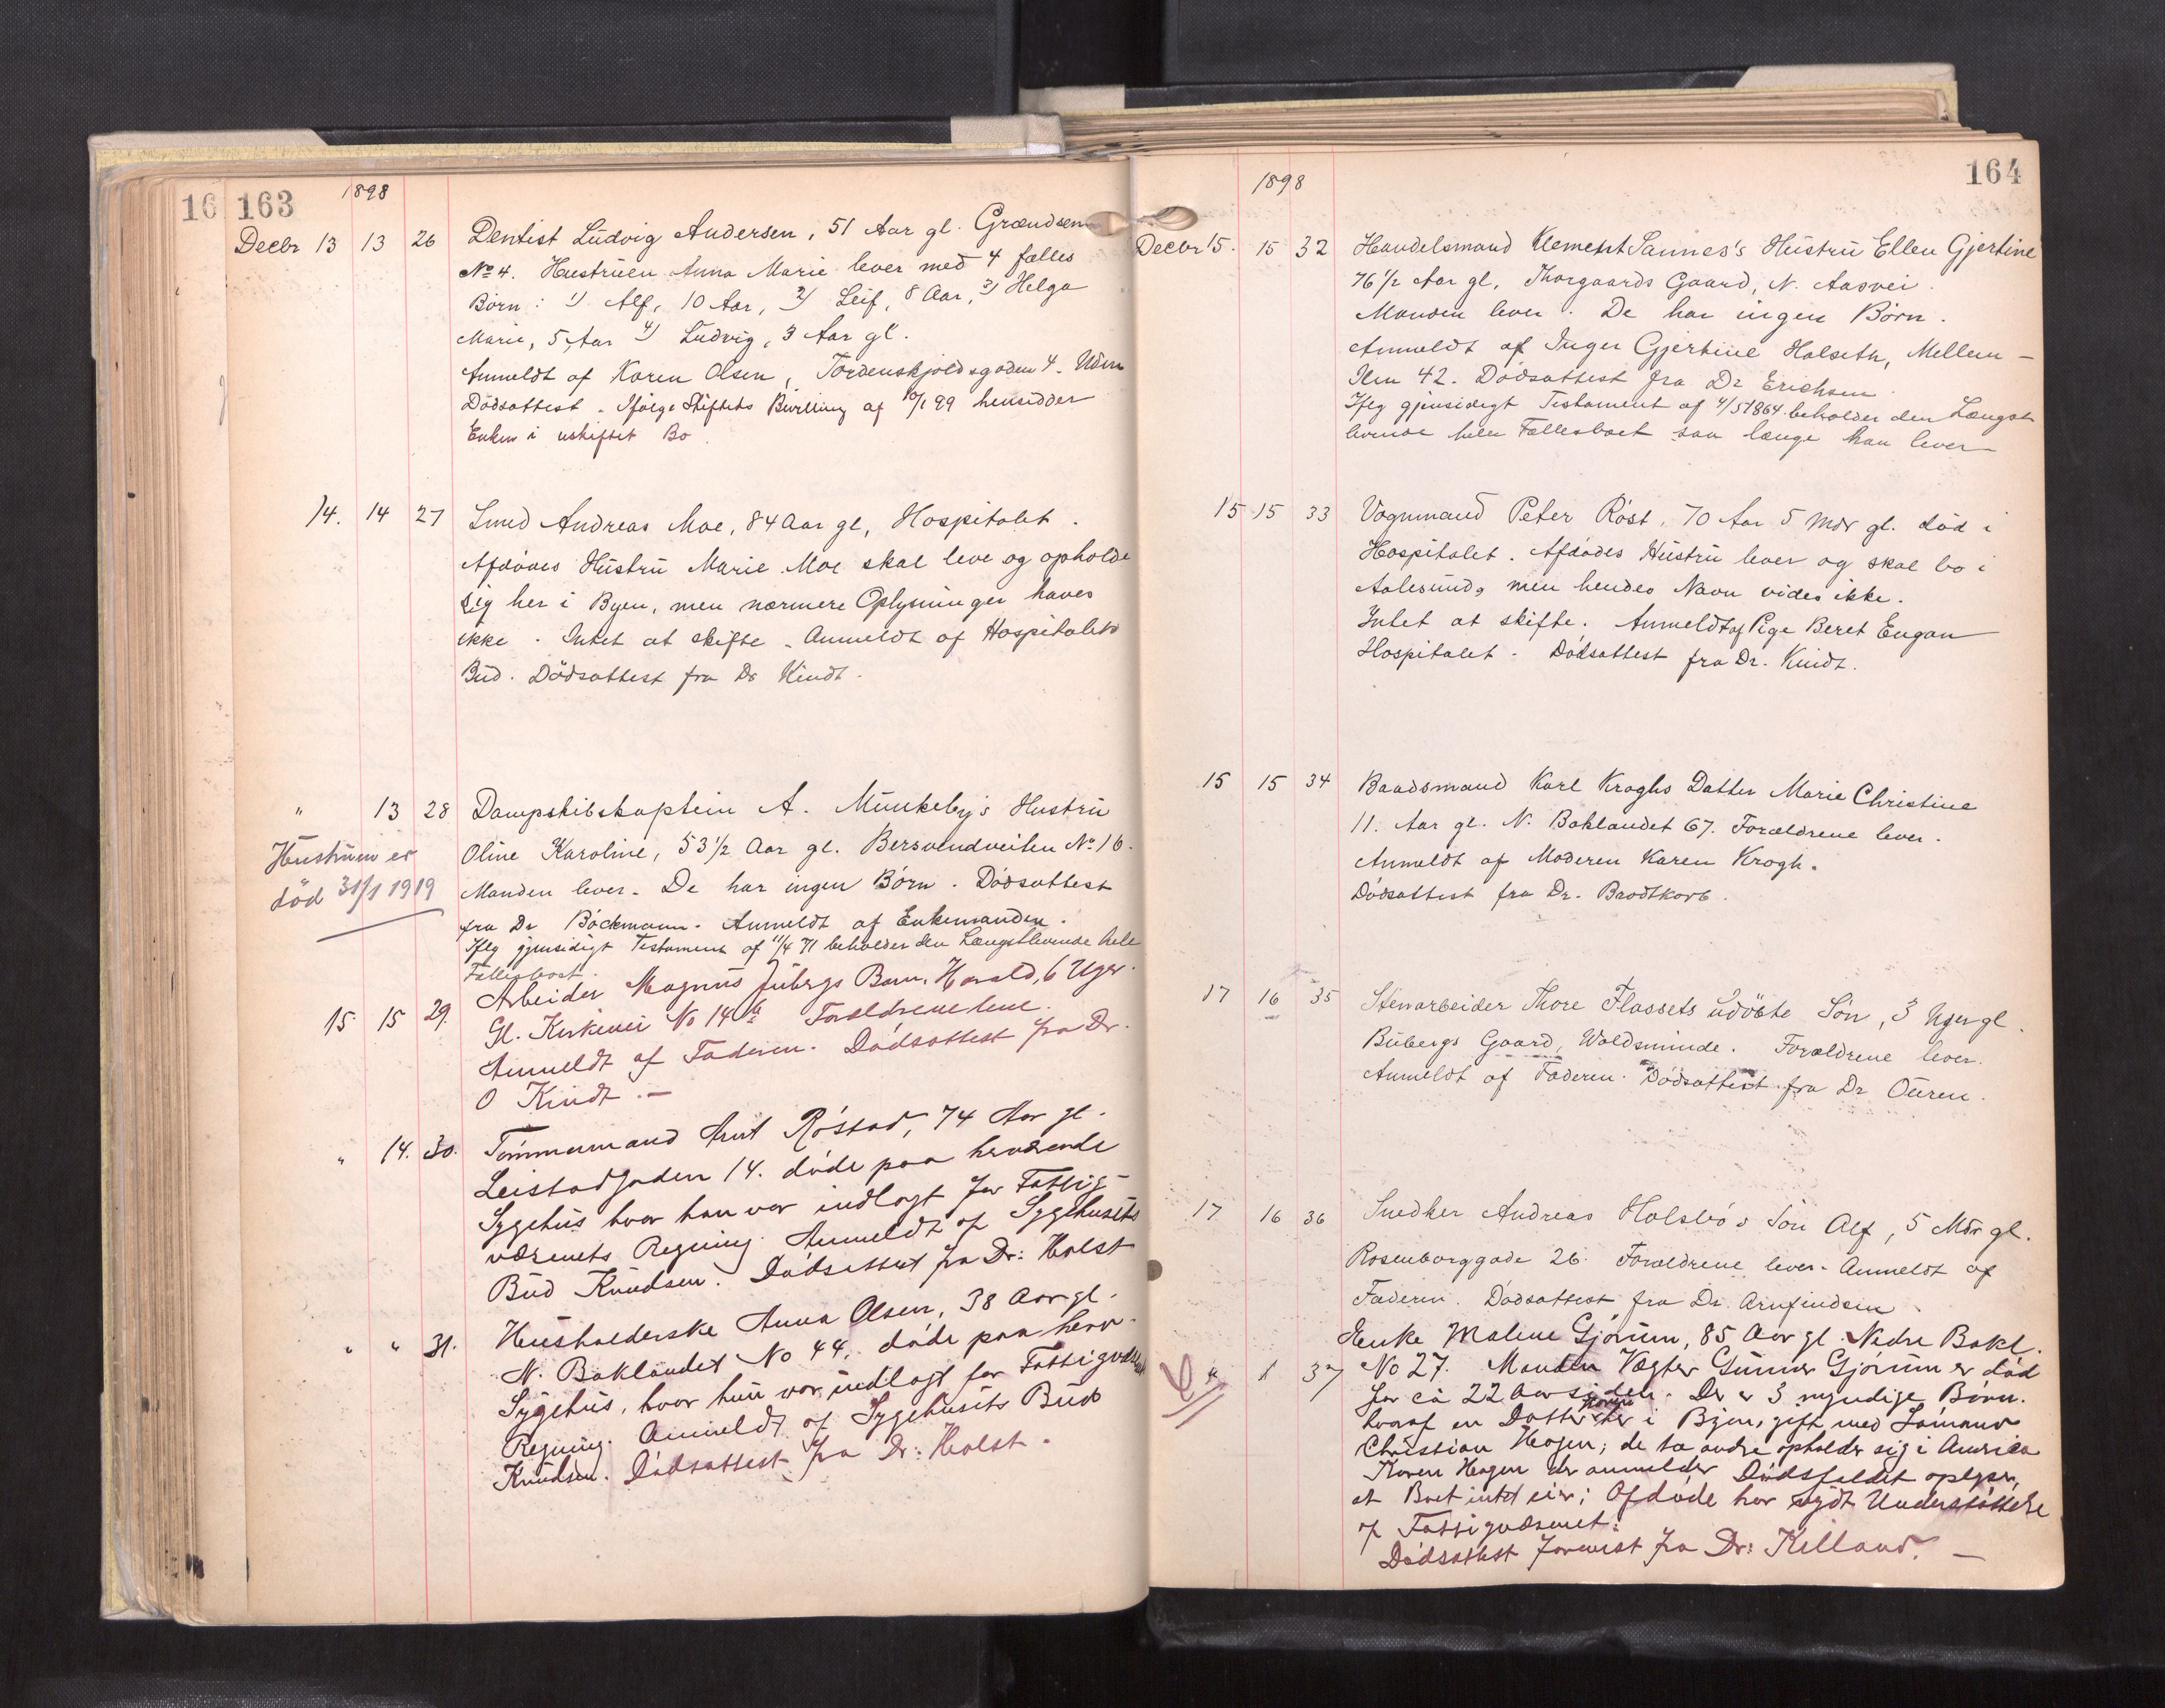 16 163 1898
Decbr 13 13 26 Dentist Ludvig Andersen, 51 Aar gl. Grændsen
No 4. Hustruen Anna Marie lever med 4 fælles
Børn: 1) Alf, 10 Aar, 2) Leif, 8 Aar, 3) Helga
Marie, 5 Aar 4) Ludvig, 3 Aar gl.
Anmeldt af Karen Olsen, Tordenskjoldsgaden 4. Uden
Dødsattest. Ifølge Skiftets Bevilling af 10/1 99 hensidder
Enken i uskiftet Bo.
14. 14 27 Smed Andreas Moe, 84 Aar gl, Hospitalet.
Afdødes Hustru Marie Moe skal leve og opholde
sig her i Byen, men nærmere Oplysninger haves
ikke. Intet at skifte. Anmeldt af Hospitalets
Bud. Dødsattest fra Dr Kindt.
" 13 28 Dampskibskaptein A. Munkeby's Hustru
Oline Karoline, 53 1/2 Aar gl. Bersvendveiten No 16.
Manden lever. De har ingen Børn. Dødsattest
fra Dr Böckmann. Anmeldt af Enkemanden.
Iflg gjensidigt Testament af 11/4 71 beholder den Længstlevende hele
Fællesboet.
Hustruen er
død 31/1 1919
15 15 29. Arbeider Magnus Jubergs Barn, Harald, 6 Uger.
Gl. Kirkevei No 14 b Forældrene leve.
Anmeldt af Faderen. Dødsattest fra Dr.
O Kindt. —
" 14. 30. Tømmermand Arnt Røstad, 74 Aar gl.
Leistadgaden 14. døde paa herværende
Sygehus hvor han var indlagt for Fattig-
væsenets Regning. Anmeldt af Sygehusets
Bud Knudsen. Dødsattest fra Dr: Holst
" " 31. Husholderske Anna Olsen, 38 Aar gl.
N. Baklandet No 44, døde paa herv.
Sygehus, hvor hun var indlagt for Fattigvæsenets
Regning. Anmeldt af Sygehusets Bud
Knudsen. Dødsattest fra Dr: Holst.
1898 164
Decbr 15. 15 32 Handelsmand Klement Sannes's Hustru Ellen Gjertine
76 1/2 Aar gl, Thorgaards Gaard, N. Aasvei.
Manden lever. De har ingen Børn.
Anmeldt af Inger Gjertine Halseth, Mellem-
Ilen 42. Dødsattest fra Dr Erichsen.
Iflg gjensidigt Testament af 4/5 1864 beholder den Længst
levende hele Fællesboet saa længe han lever
15 15 33 Vognmand Peter Røst, 70 Aar 5 Mdr gl. død i
Hospitalet. Afdødes Hustru lever og skal bo i
Aalesund, men hendes Navn vides ikke.
Intet at skifte. Anmeldt af Pige Beret Engan
Hospitalet. Dødsattest fra Dr. Kindt.
15 15 34 Baadsmand Karl Kroghs Datter Marie Christine
11. Aar gl. N. Baklandet 67. Forældrene lever.
Anmeldt af Moderen Karen Krogh.
Dødsattest fra Dr. Brodtkorb.
17 16 35 Stenarbeider Thore Flassets udøbte Søn, 3 Uger gl.
Bubergs Gaard, Woldsminde. Forældrene lever.
Anmeldt af Faderen. Dødsattest fra Dr Øuren.
17 16 36 Snedker Andreas Holsbø's Søn Alf, 5 Mdr gl.
Rosenborggade 26. Forældrene lever. Anmeldt af
Faderen. Dødsattest fra Dr. Arnfindsen.
Enke Malene Gjørum, 85 Aar gl. Nedre Bakl.
37 No 27. Manden Vægter Gunner Gjørum er død
for ca 22 Aar siden. Der er 3 myndige Børn.
hvoraf en Datter Karen her i Byen, gift med Sømand
Christian Hagen; de to andre opholder sig i America
Karen Hagen der anmelder Dødsfaldet oplyser,
at Boet intet eier; Afdøde har nydt Understøttelse
af Fattigvæsenet.
Dødsattest forevist fra Dr: Killand. —